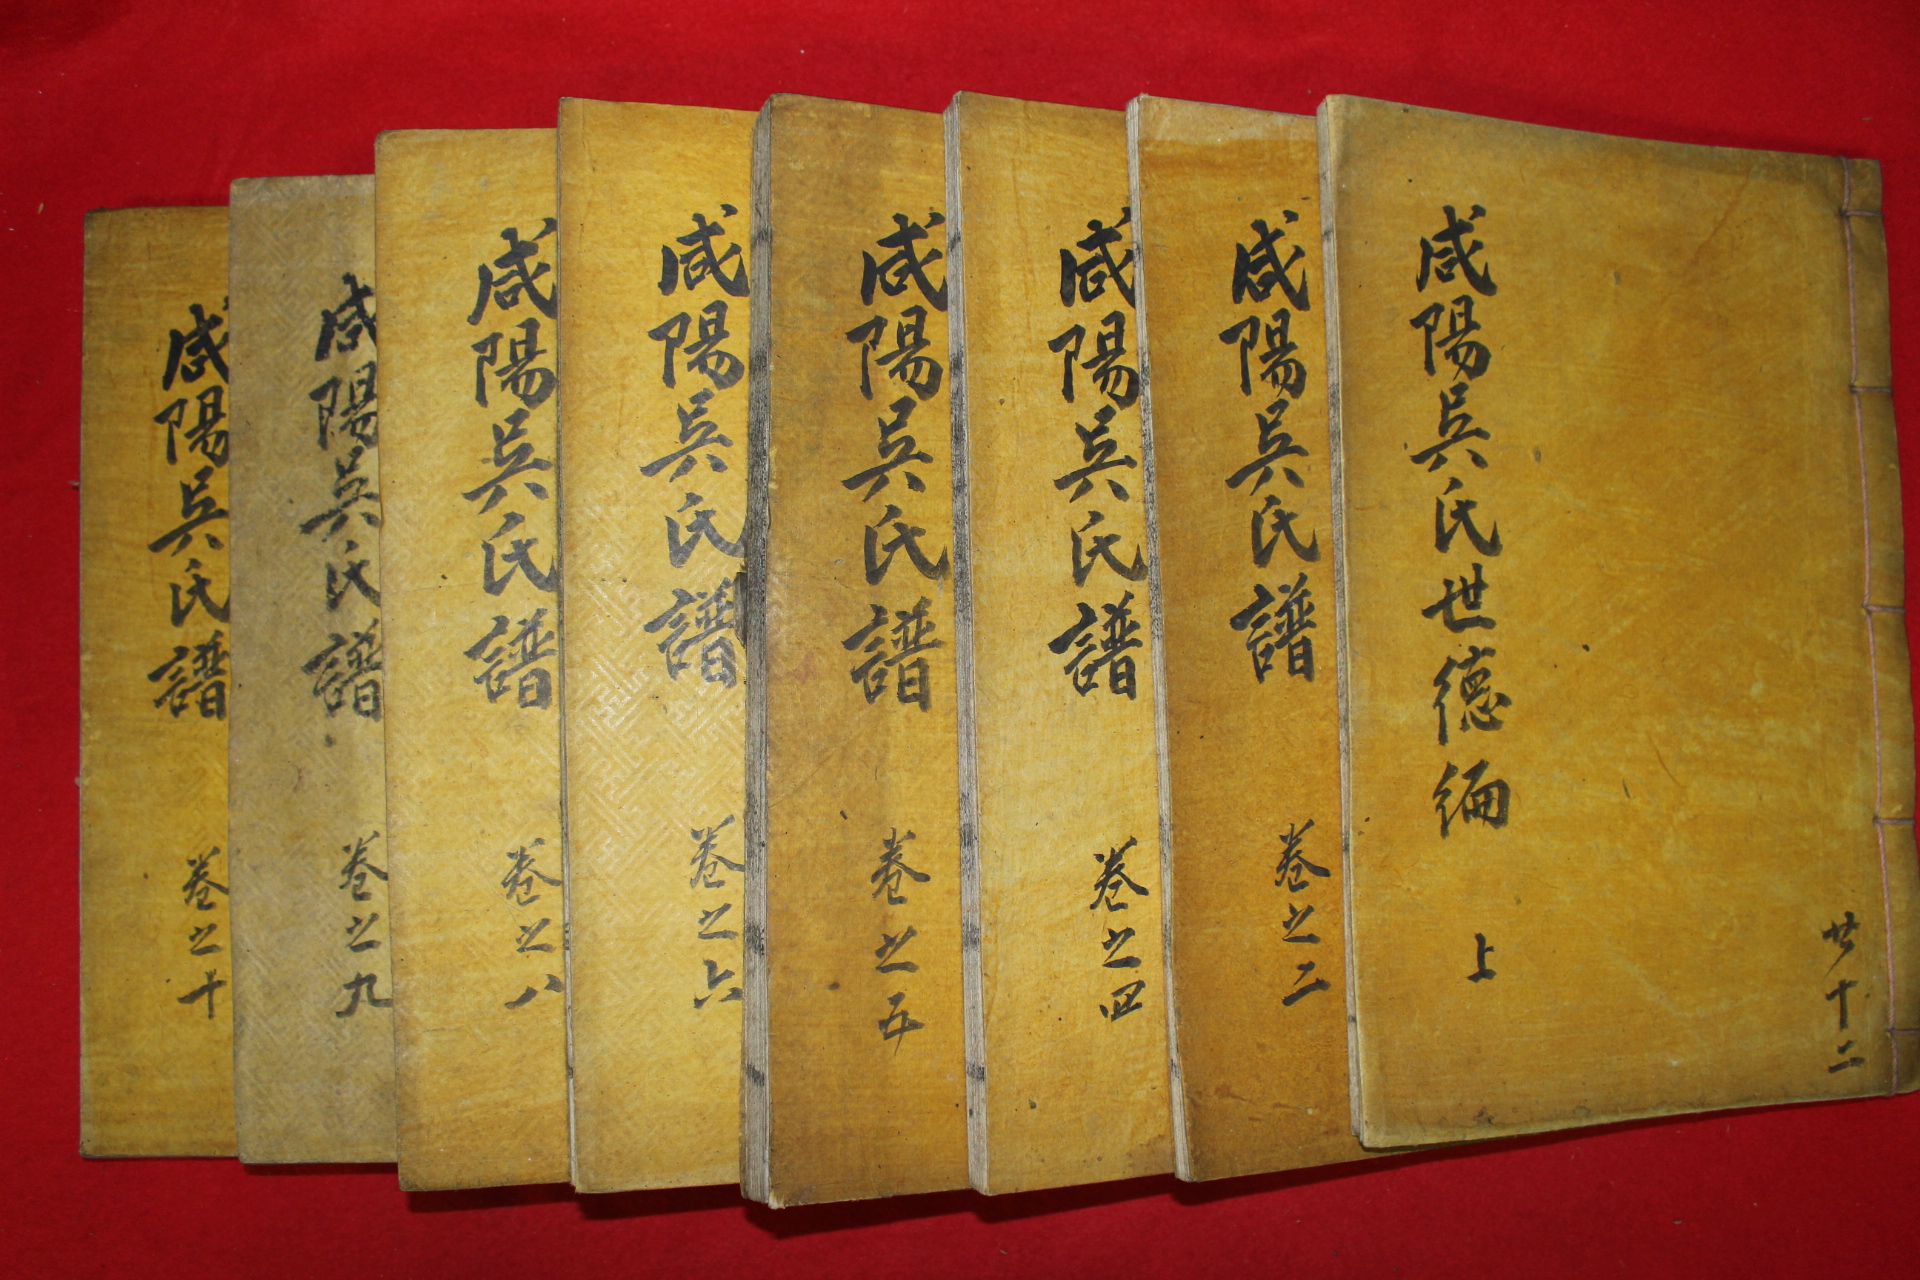 咸陽吳氏世德編 上
共十二
咸陽吳氏譜 卷之二
咸陽吳氏譜 卷之四
咸陽吳氏譜 卷之五
咸陽吳氏譜 卷之六
咸陽吳氏譜 卷之八
咸陽吳氏譜 卷之九
咸陽吳氏譜 卷之十